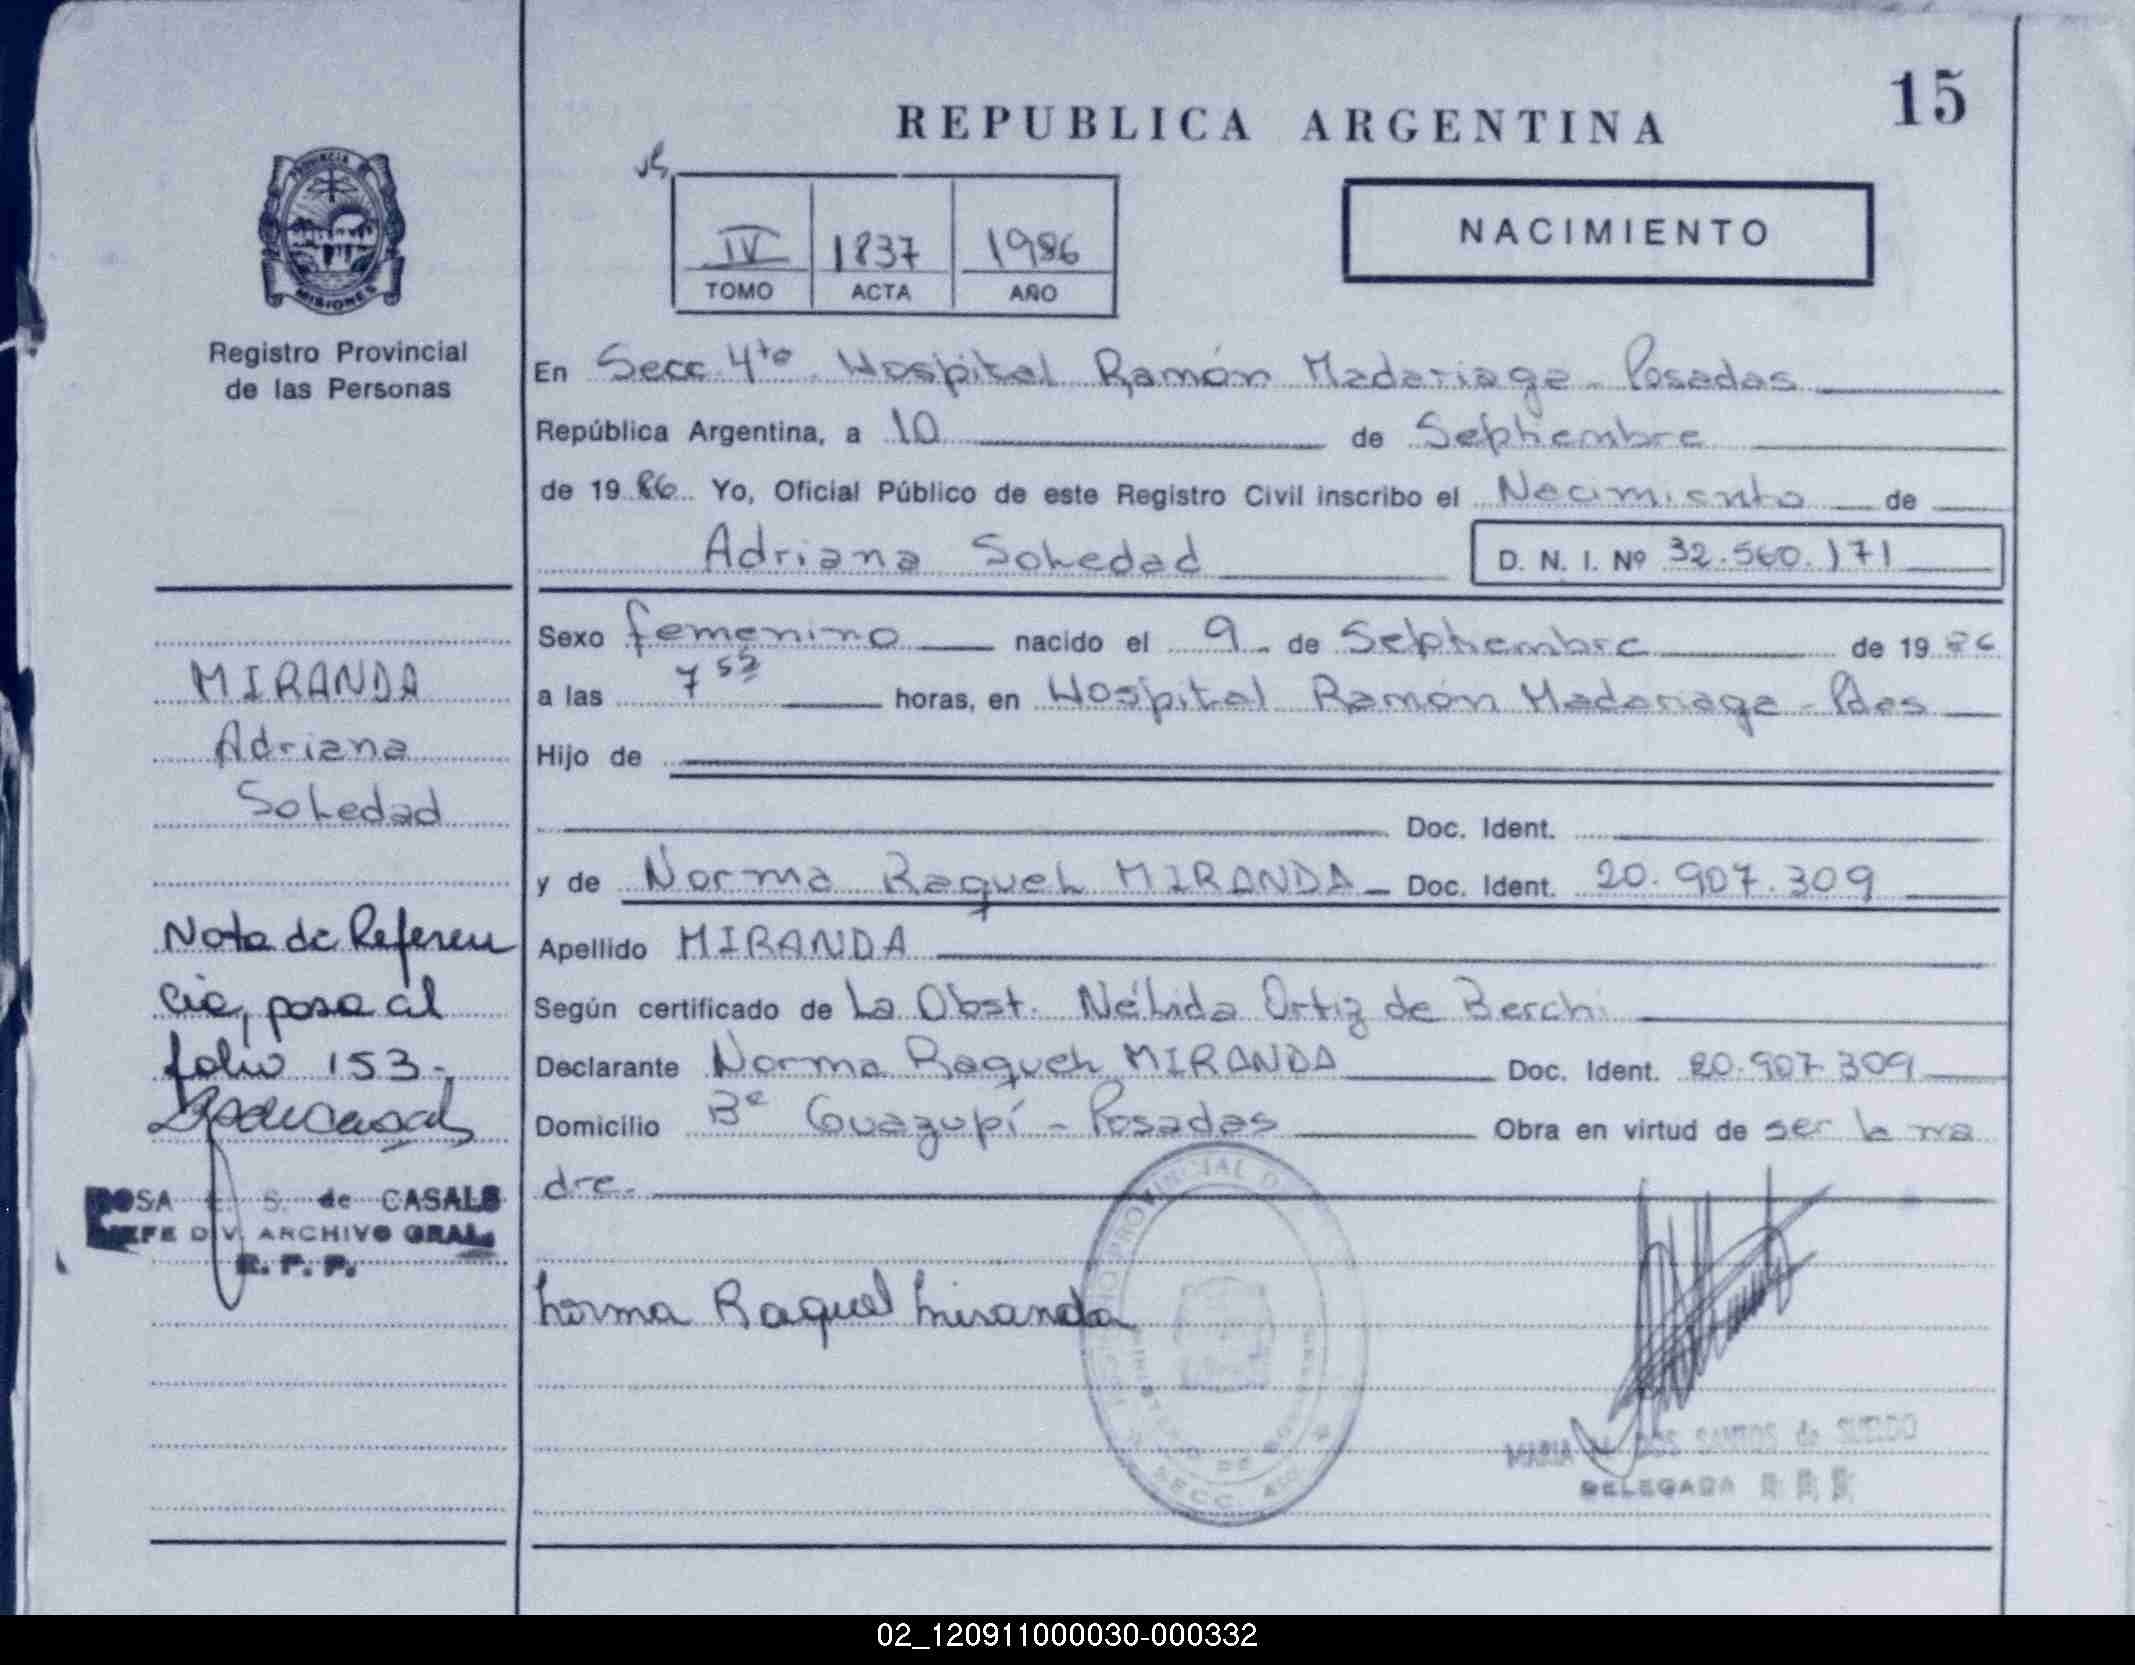 15
REPUBLICA ARGENTINA
PROVINCIA DE
MISIONES
Registro Provincial
de las Personas
IV 1837 1986
TOMO ACTA AÑO
NACIMIENTO
En Secc 4to Hospital Ramón Madariaga - Posadas
República Argentina, a 10 de Septiembre
de 19 86 Yo, Oficial Público de este Registro Civil inscribo el Nacimiento de
Adriana Soledad D. N. I. Nº 32.560.171
Sexo femenino nacido el 9 de Septiembre de 19 86
a las 7 52 horas, en Hospital Ramón Madariaga - Pdas
Hijo de
Doc. Ident.
y de Norma Raquel MIRANDA Doc. Ident. 20.907.309
Apellido MIRANDA
Según certificado de La Obst. Nélida Ortiz de Berchi
Declarante Norma Raquel MIRANDA Doc. Ident. 20.907.309
Domicilio Bº Guazupí - Posadas Obra en virtud de ser la ma
dre.
Norma Raquel Miranda
MARIA DOS SANTOS de SUELDO
DELEGADA
MIRANDA
Adriana
Soledad
Nota de Referen
cia, pasa al
folio 153.
ROSA E. S. de CASALS
JEFE DIV. ARCHIVO GRAL.
R. P. P.
02_120911000030-000332